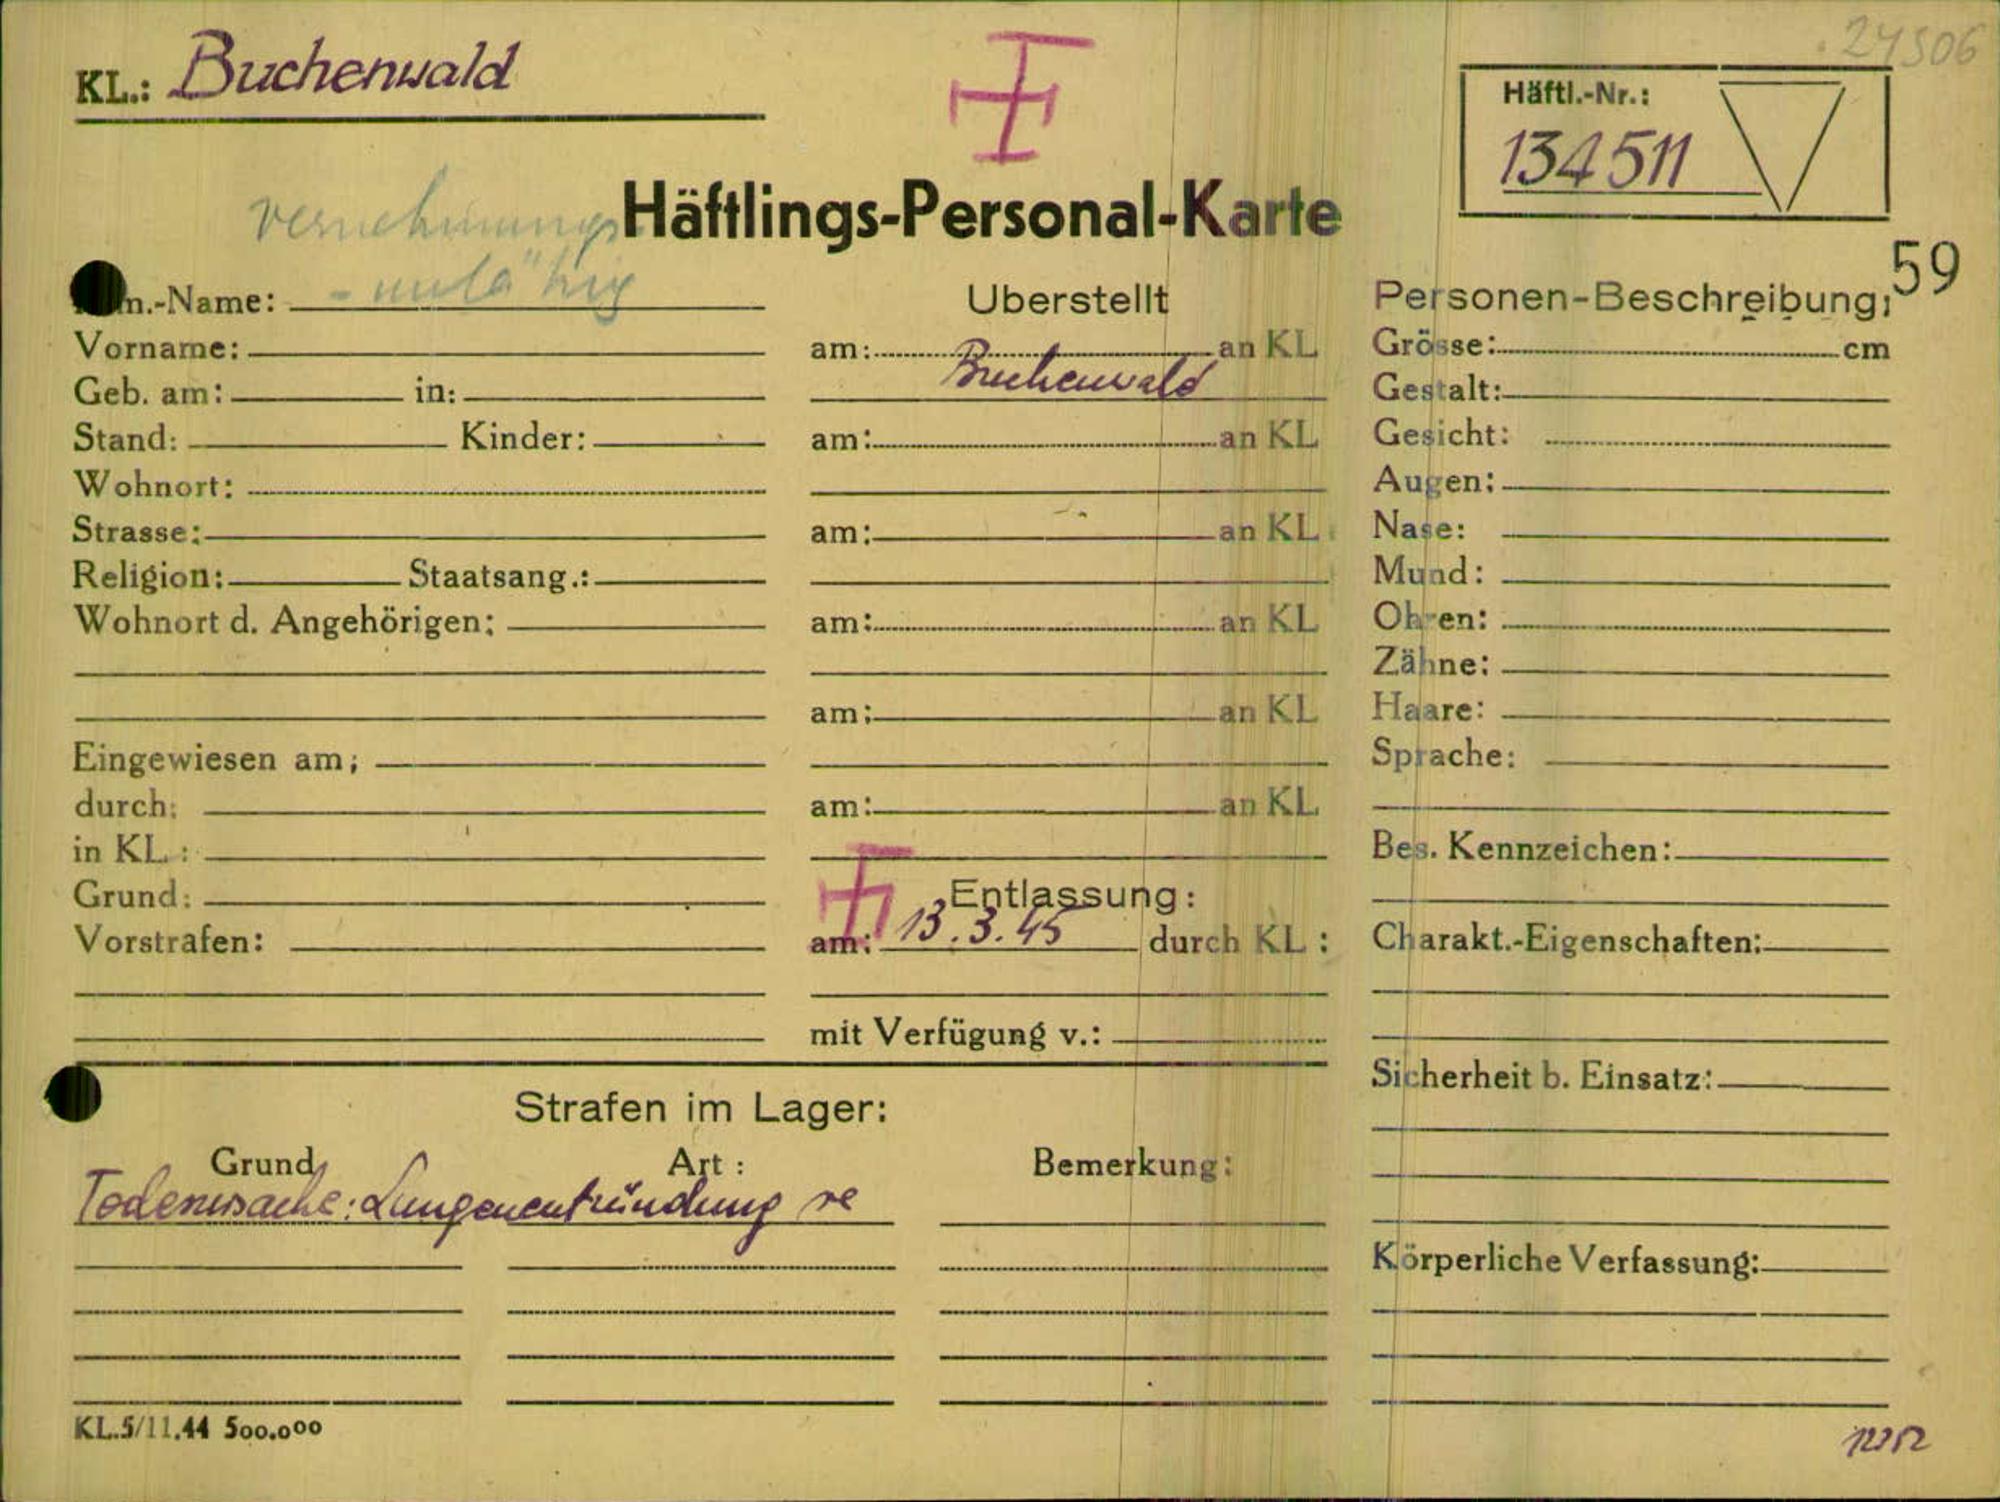 24506
KL.: Buchenwald
Häftl.-Nr.:
134511
vernehmungs-
Häftlings-Personal-Karte
-unfähig
59
m.-Name:
Vorname:
Geb. am: in:
Stand: Kinder:
Wohnort:
Strasse:
Religion: Staatsang.:
Wohnort d. Angehörigen:
Eingewiesen am:
durch:
in KL.:
Grund:
Vorstrafen:
Uberstellt
am: an KL
Buchenwald
am: an KL
am: an KL
am: an KL
am: an KL
am: an KL
Entlassung:
am: 13.3.45 durch KL:
mit Verfügung v.:
Personen-Beschreibung:
Grösse: cm
Gestalt:
Gesicht:
Augen:
Nase:
Mund:
Ohren:
Zähne:
Haare:
Sprache:
Bes. Kennzeichen:
Charakt.-Eigenschaften:
Sicherheit b. Einsatz:
Körperliche Verfassung:
Strafen im Lager:
Grund Art: Bemerkung:
Todesursache: Lungenentzündung re
KL.5/11.44 500.000